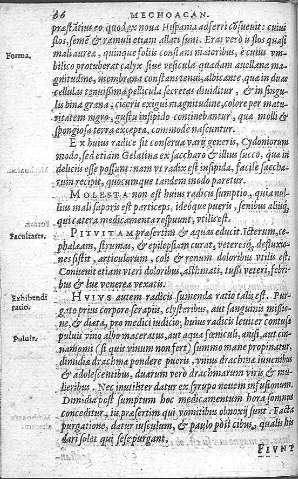 86 MECHOACAN.
præstātius eo quod ex noua Hispania adferri cōsueuit: cuius
flos, semē & ramuli etiam allati sunt. Erat verò is flos quasi
Forma. mali aurea, quinque folijs constans maioribus, è cuius vm-
bilico protuberat calyx siue vesicula quadam auellanæ ma-
gnitudine, membrana constans tenui, albicante, quæ in duas
cellulas tenuissima pellicula secretas diuiditur, & in singu-
lis bina grana, ciceris exigui magnitudine, colore per matu-
ritatem nigro, gustu insipido continebantur, quæ molli &
spongiosa terra excepta, commodè nascuntur.
EX huius radice fit conserua varij generis, Cydoniorum
modo, sed etiam Gelatina ex saccharo & illius succo, quæ in
delicijs esse possunt: nam vt radix est insipida, facile saccha-
rum recipit, quocumque tandem modo paretur.
MOLESTA non est huius radicis sumptio, quia nul-
lius mali saporis est particeps, ideóque pueris, senibus alijsq́,
qui cætera medicamenta respuunt, vtilis est.
Facultates. PITVITAM præsertim & aquas educit. Icterum, ce-
phalæam, strumas, & epilepsiam curat, veteres
nes sistit, articulorum, coli & renum doloribus vtilis est.
Conuenit etiam vteri doloribus, asthmati, tussi veteri, febri-
bus & lue venerea vexatis.
Exhibendi HVIVS autem radicis sumenda ratio talis est. Pur-
ratio. gato prius corpore serapijs, clysteribus, aut sanguinis missio-
ne, & diæta, pro medici iudicio; huius radicis leuiter contusæ
Puluis. puluis vino albo maceratus, aut aqua fœniculi, anisi, aut cin-
namomi (si quis vinum non fert) summo mane propinatur,
dimidia drachma pondere pueris, vnius drachmæ iuuenibus
& adolescentibus, duarum verò drachmarum viris & mu-
lieribus. Nec inutiliter datur ex syrupo neuem infusionum.
Dimidia post sumptum hoc medicamentum hora somnus
conceditur, ijs præsertim qui vomitibus obnoxij sunt. Facta
purgatione, datur iusculum, & paulo post cibus, qualis his
dari solet qui sese purgant.
FIVNT